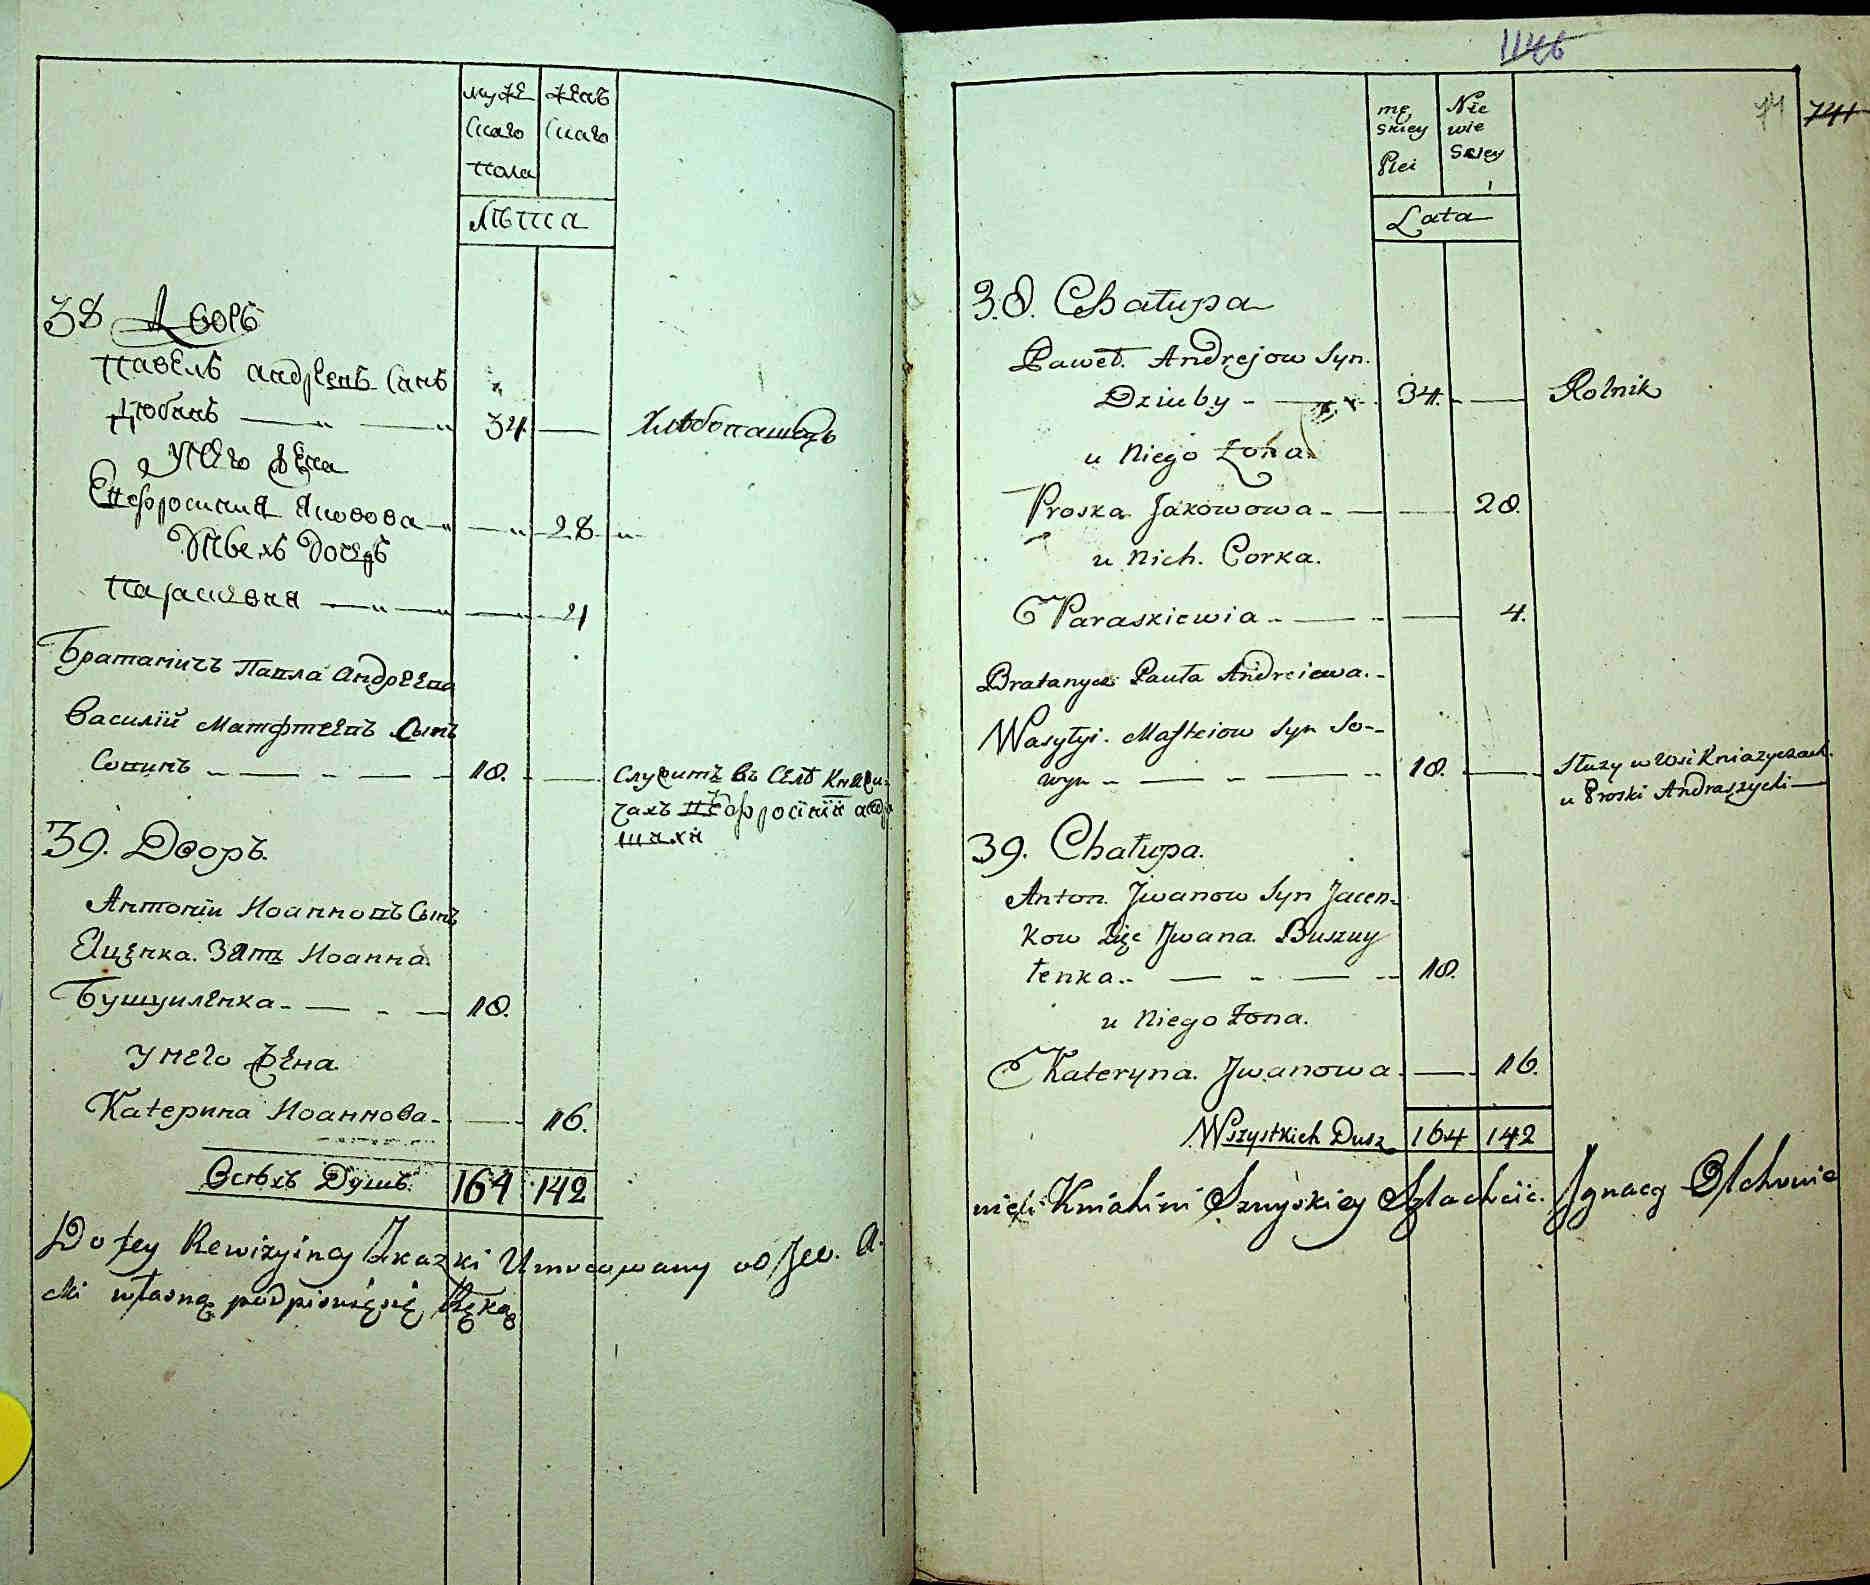 муже женъ
скаго скаго
пола
Лѣтта
38 Дворъ
Павелъ Андреевъ Сынъ
Дюбинъ — „ — „ 34 — Хлѣбопашецъ
У Него Жена
Ефросиния Яковова — „ — „ 28 „
У Нихъ Дочерь
Параскевия — „ — 4
Братаничъ Павла Андреева
Василій Матфтеевъ Сынъ
Совинъ — 18. — Служитъ въ Селѣ Княжи-
чахъ Ефросініи
39. Дворъ.
Антоніи Иоанновъ Сынъ
Яценка. Зять Иоанна.
Бушуиленка. — 18.
У него Жена.
Катерина Иоаннова. — 16.
Всѣхъ Душъ. 164 142
Do tey Rewizyiney Skazki Umocowany od Jw.
cki własną podpisuię się Ręką
1146
74 741
mę Nie
skiey wie
Plei Skiey
Lata
38. Chałupa
Paweł. Andrejow Syn.
Dziuby — 34. — Rolnik
u Niego Żona.
Proska Jakowowa — 28.
u Nich. Corka.
Paraskiewia — 4.
Bratanycz Pauła Andreiewa.
Wasyłyi. Mafteiow Syn So-
wyn — 18. — Służy w Wsi Kniażyczach.
u Proski Andraszychi —
39. Chałupa.
Anton. Jwanow Syn Jacen-
kow Zięć Jwana. Buszuy
łenka. — 18.
u Niego Żona.
Kateryna. Jwanowa — 16.
Wszystkich Dusz 164 142
Szlachcic. Ignacy